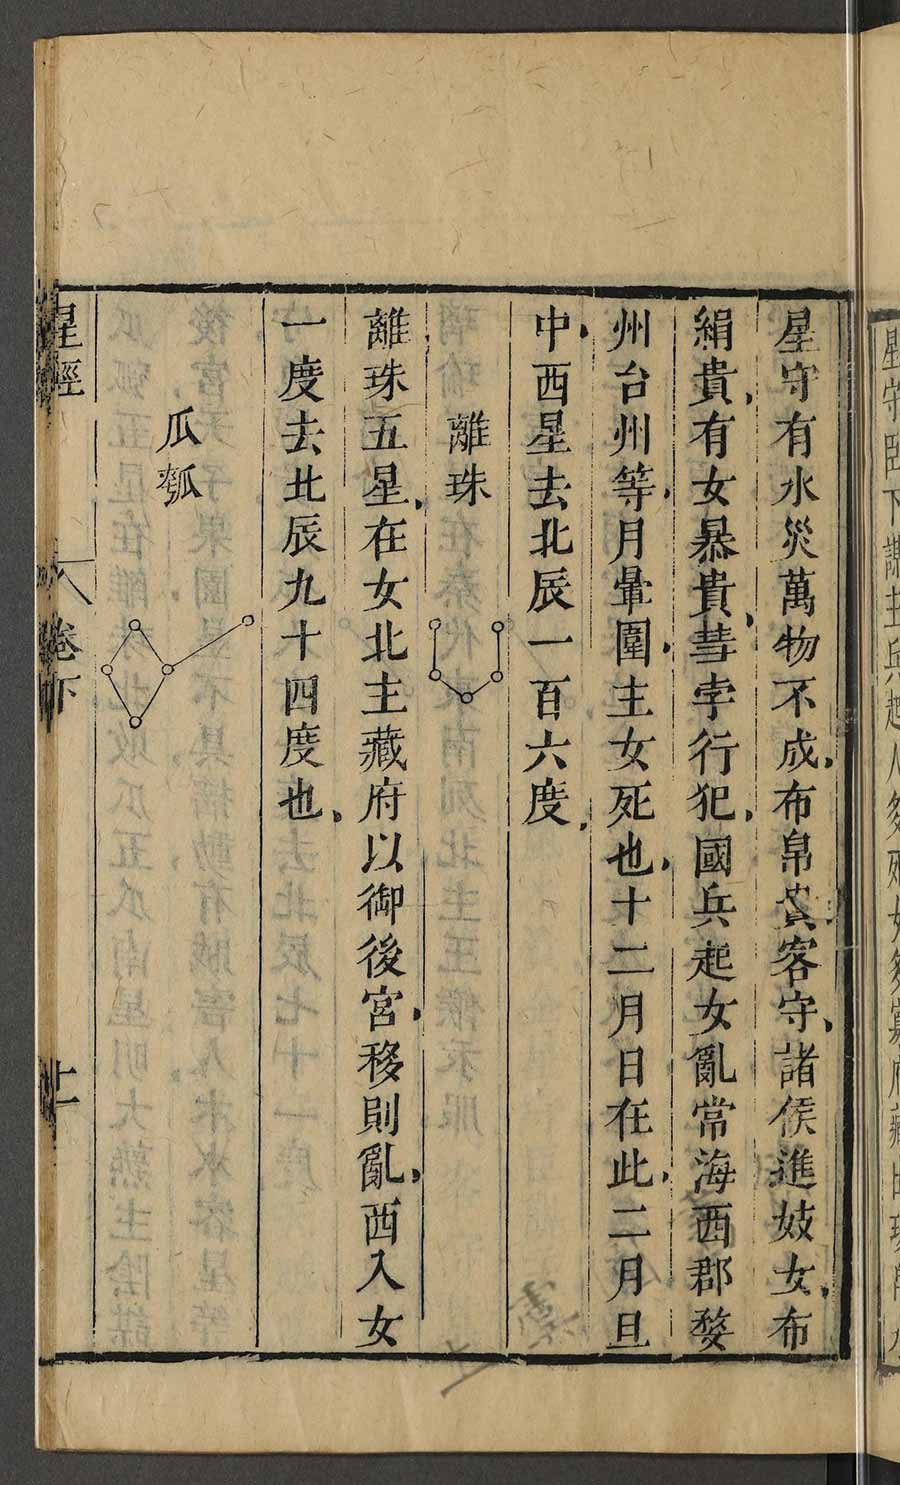 星守有水災萬物不成布帛貴客守諸侯進妓女布
絹貴有女暴貴彗孛行犯國兵起女亂常海西郡婺
州台州等月暈圍主女死也十二月日在此二月旦
中西星去北辰一百六度
離珠
離珠五星在女北主藏府以御後宮移則亂西入女
一度去北辰九十四度也
瓜瓠
星經
卷下